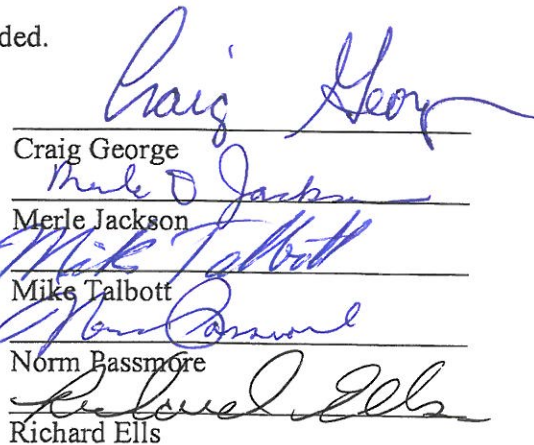 ded.
Craig George
Craig George
Merle D Jackson
Merle Jackson
Mike Talbott
Mike Talbott
Norm Passmore
Norm Passmore
Richard Ells
Richard Ells